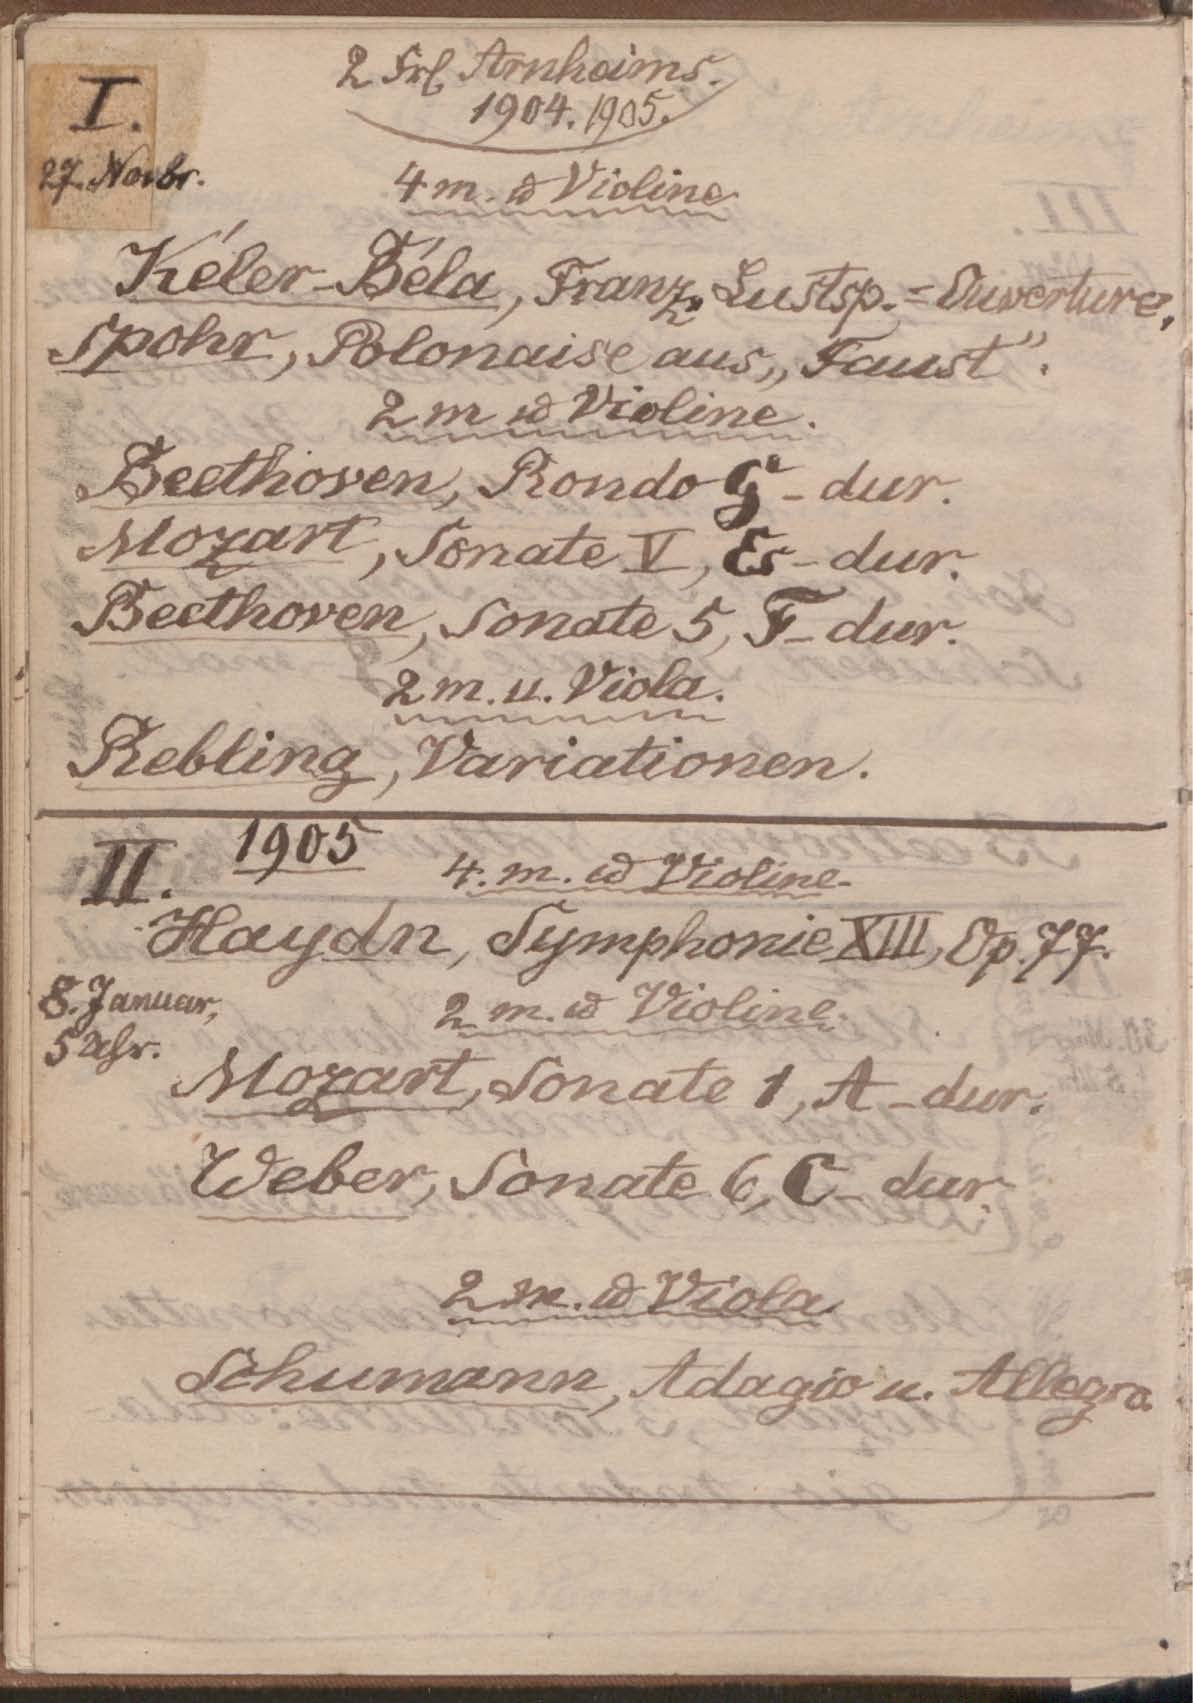 2 Frl. Arnheims.
1904. 1905.
I.
27. Novbr.
4 m. u Violine
Kéler-Béla, Franz. Lustsp.=Ouverture,
Spohr, Polonaise aus „Faust".
2 m u Violine.
Beethoven, Rondo G - dur.
Mozart, Sonate V, Es - dur.
Beethoven, Sonate 5, F - dur.
2 m. u. Viola.
Rebling, Variationen.
II. 1905 4. m. u Violine
Haydn, Symphonie XIII, Op. 77.
8. Januar,
5 Uhr.
2 m. u Violine.
Mozart, Sonate 1, A - dur.
Weber, Sonate 6, C - dur.
2 m. u Viola.
Schumann, Adagio u. Allegro.